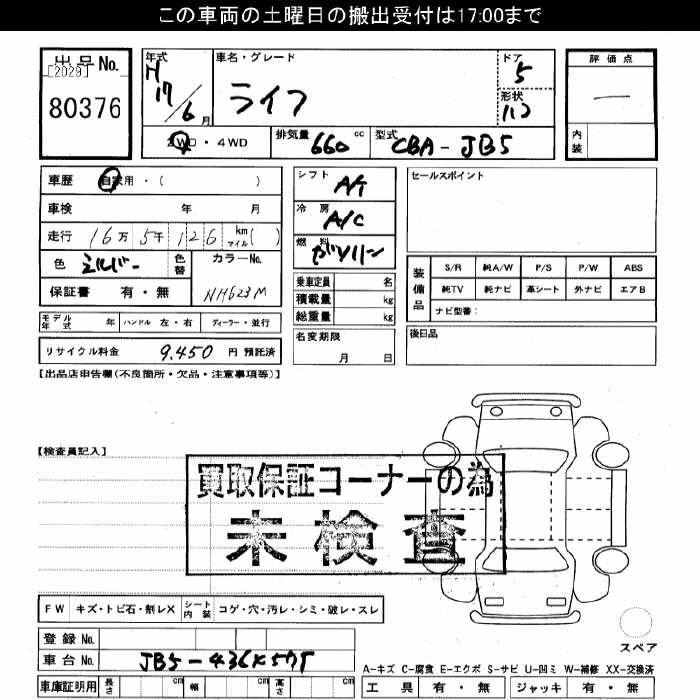 この車両の土曜日の搬出受付は17:00まで
出品No.
[2029]
80376
年式
H
17/6月
車名・グレード
ライフ
ドア
5
形状
ハコ
評価点
一
内装
2WD・4WD
排気量 660 cc
型式 CBA-JB5
車歴 自家用・( )
車検 年 月
走行 16万 5千 126 km マイル( )
色 シルバー
色替
カラーNo.
NH623M
保証書 有・無
シフト A/T
冷房 A/C
燃料 ガソリン
乗車定員 名
積載量 kg
総重量 kg
セールスポイント
装備品
S/R 純A/W P/S P/W ABS
純TV 純ナビ 革シート 外ナビ エアB
ナビ型番:
モデル年式 年 ハンドル 左・右 ディーラー・並行
リサイクル料金 9,450 円 預託済
名変期限
月 日
後日品
【出品店申告欄(不良箇所・欠品・注意事項等)】
【検査員記入】
買取保証コーナーの為
未検査
FW キズ・トビ石・割レX シート内装 コゲ・穴・汚レ・シミ・破レ・スレ
スペア
登録No.
車台No.
車庫証明用 長さ cm 幅 cm 高さ cm
A-キズ C-腐食 E-エクボ S-サビ U-凹ミ W-補修 XX-交換済
工具 有・無 ジャッキ 有・無